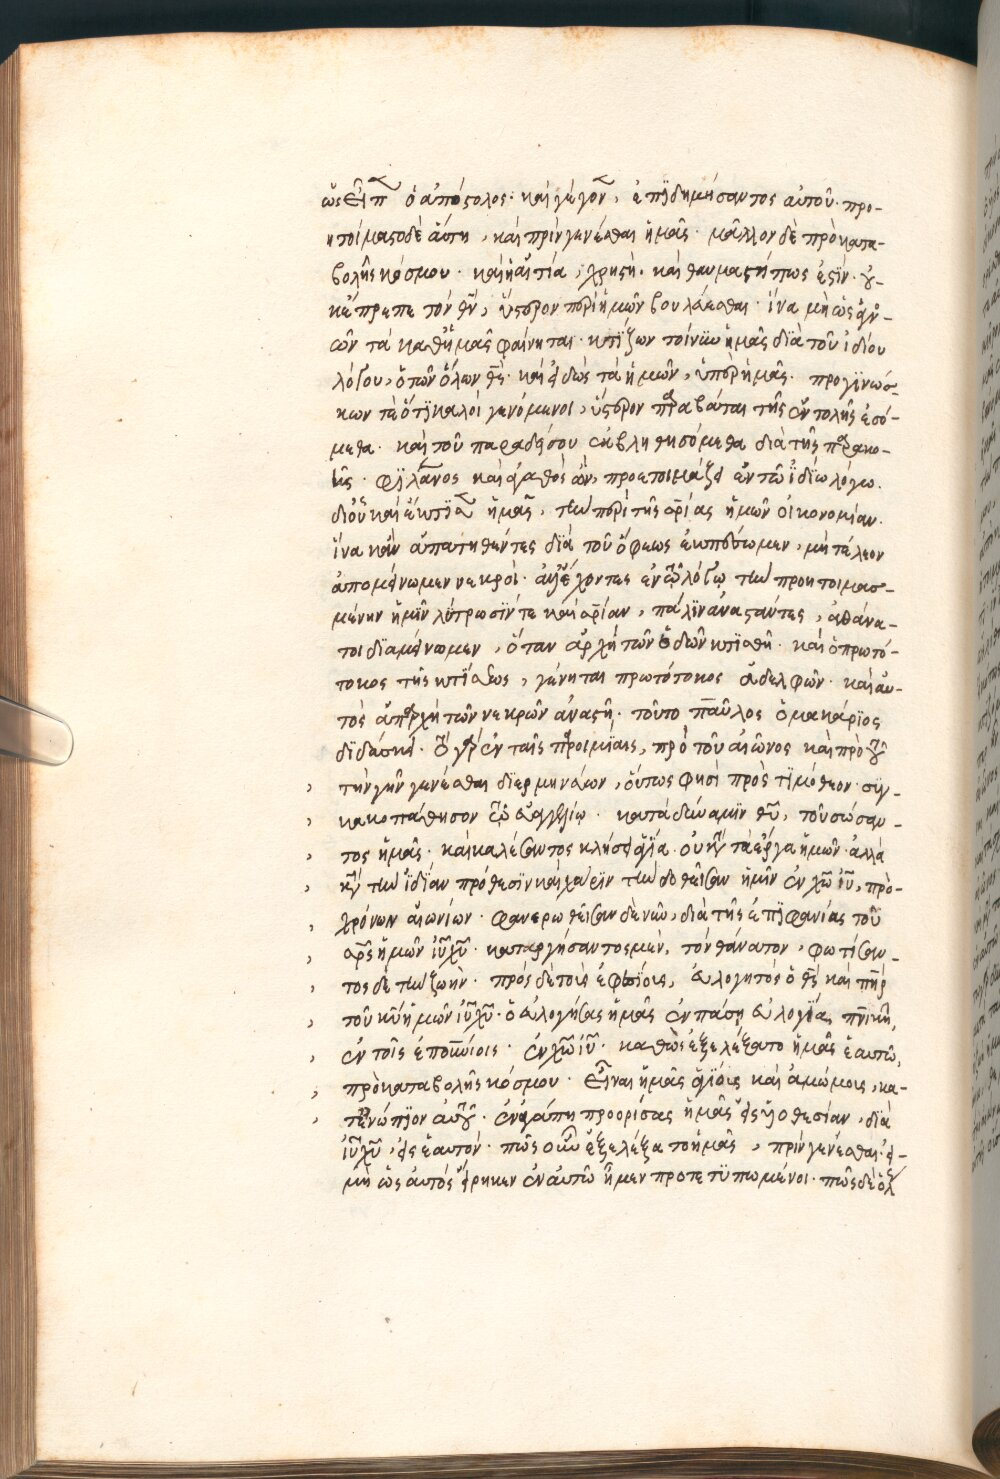 ὡς εἶπ ὁ ἀπόστολος· καὶ γέγον, ἐπιδημήσαντος αὐτοῦ· προ-
ητοίμαστο δὲ αὕτη, καὶ πρὶν γενέσθαι ἡμᾶς· μᾶλλον δὲ πρὸ κατα-
βολῆς κόσμου· καὶ ἡ αἰτία, χρηστὴ· καὶ θαυμαστή πως ἐστίν· οὐ-
κ ἔπρεπε τὸν θν̄, ὕστερον περὶ ἡμῶν βουλεύεσθαι· ἵνα μὴ ὡς ἀγνο-
ῶν τὰ καθ' ἡμᾶς φαίνηται· κτίζων τοίνυν ἡμᾶς διὰ τοῦ ἰδίου
λόγου, ὁ τῶν ὅλων θς̄· καὶ εἰδὼς τὰ ἡμῶν, ὑπὲρ ἡμᾶς· προγινώσ-
κων τε ὅτι καλοὶ γενόμενοι, ὕστερον παραβάται τῆς ἐντολῆς ἐσό-
μεθα· καὶ τοῦ παραδείσου ἐκβληθησόμεθα διὰ τῆς παρακο-
ῆς· φιλανος καὶ ἀγαθὸς ὢν, προετοιμάζει ἐν τῶ ἰδίω λόγω·
δι' οὗ καὶ ἔκτισεν ἡμᾶς, τὴν περὶ τῆς σρίας ἡμῶν οἰκονομίαν·
ἵνα κἂν ἀπατηθέντες διὰ τοῦ ὄφεως ἐκπέσωμεν, μὴ τέλεον
ἀπομένωμεν νεκροὶ· ἀλλ' ἔχοντες ἐν τῷ λόγῳ τὴν προητοιμασ-
μένην ἡμῖν λύτρωσίν τε καὶ σρίαν, πάλιν ἀναστάντες, ἀθάνα-
τοι διαμένωμεν, ὅταν ἀρχὴ τῶν ὁδῶν κτισθῆ· καὶ ὁ πρωτό-
τοκος τῆς κτίσεως, γένηται πρωτότοκος ἀδελφῶν· καὶ αὐ-
τὸς ἀπαρχὴ τῶν νεκρῶν ἀναστῆ· τοῦτο παῦλος ὁ μακάριος
διδάσκει· τὸ γὰρ ἐν ταῖς παροιμίαις, πρὸ τοῦ αἰῶνος καὶ πρὸ τοῦ
τὴν γῆν γενέσθαι διερμηνεύων, οὕτως φησὶ πρὸς τιμόθεον· συγ-
κακοπάθησον τῷ εὐαγγελίῳ· κατὰ δύναμιν θῡ, τοῦ σώσαν-
τος ἡμᾶς· καὶ καλέσαντος κλήσει ἁγία· οὐ κατὰ τὰ ἔργα ἡμῶν· ἀλλὰ
κατὰ τὴν ἰδίαν πρόθεσιν καὶ χάριν τὴν δοθεῖσαν ἡμῖν ἐν χω̄ ιῡ, πρὸ
χρόνων αἰωνίων· φανερωθεῖσαν δὲ νῦν, διὰ τῆς ἐπιφανίας τοῦ
σρ̄ς ἡμῶν ιῡ χῡ· καταργήσαντος μὲν, τὸν θάνατον, φωτίσαν-
τος δὲ τὴν ζωὴν· πρὸς δὲ τοὺς ἐφεσίοις, εὐλογητὸς ὁ θς̄ καὶ πη̄ρ
τοῦ κῡ ἡμῶν ιῡ χῡ· ὁ εὐλογήσας ἡμᾶς ἐν πάσῃ εὐλογίᾳ πνικῆ,
ἐν τοῖς ἐπουνίοις· ἐν χω̄ ιῡ· καθὼς ἐξελέξατο ἡμᾶς ἑαυτῶ,
πρὸ καταβολῆς κόσμου· εἶναι ἡμᾶς ἁγίοις καὶ ἀμώμοις, κα-
τενώπιον αὐτοῦ· ἐν ἀγάπη προορίσας ἡμᾶς εἰς υἱοθεσίαν, διὰ
ιῡ χῡ, εἰς ἑαυτόν· πῶς οὖν ἐξελέξατο ἡμᾶς, πρὶν γενέσθαι· εἰ
μὴ ὡς αὐτὸς εἴρηκεν ἐν αὐτῶ ἦμεν προτετυπωμένοι· πῶς δὲ ὅλ